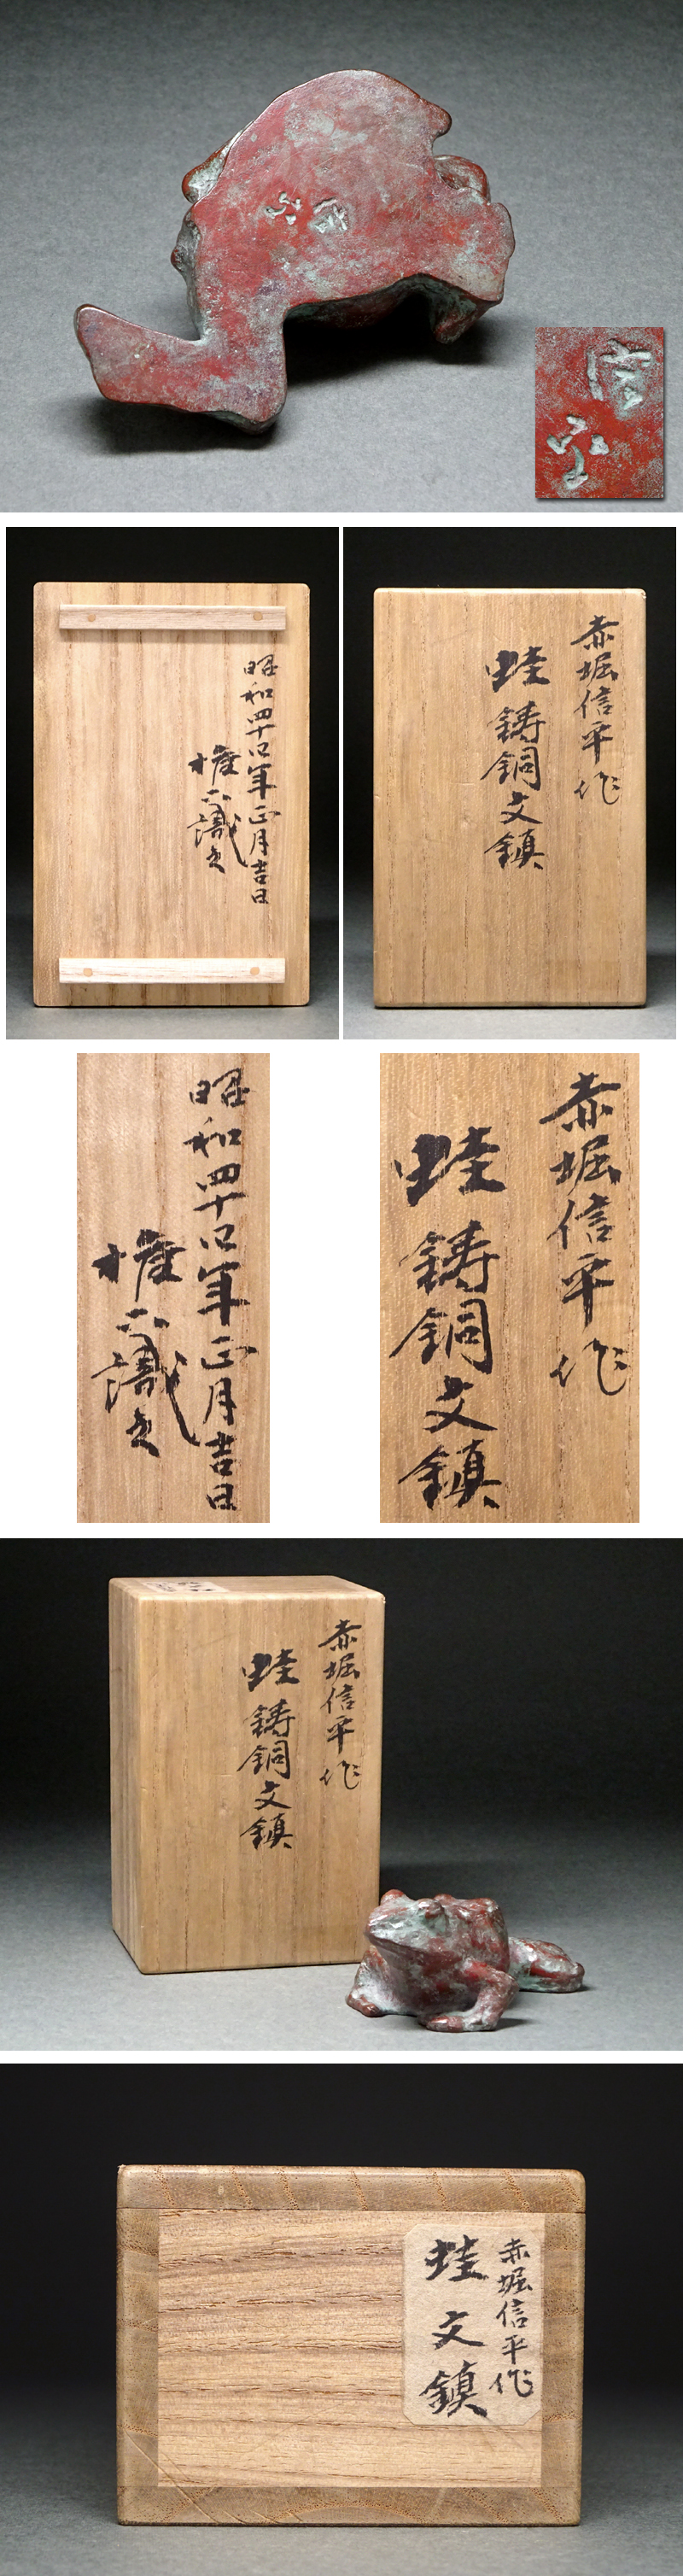 信平
昭和四十年正月吉日
権六識之
赤堀信平作
蛙鋳銅文鎮
昭和四十年正月吉日
権六識之
赤堀信平作
蛙鋳銅文鎮
赤堀信平作
蛙鋳銅文鎮
赤堀信平作
蛙文鎮